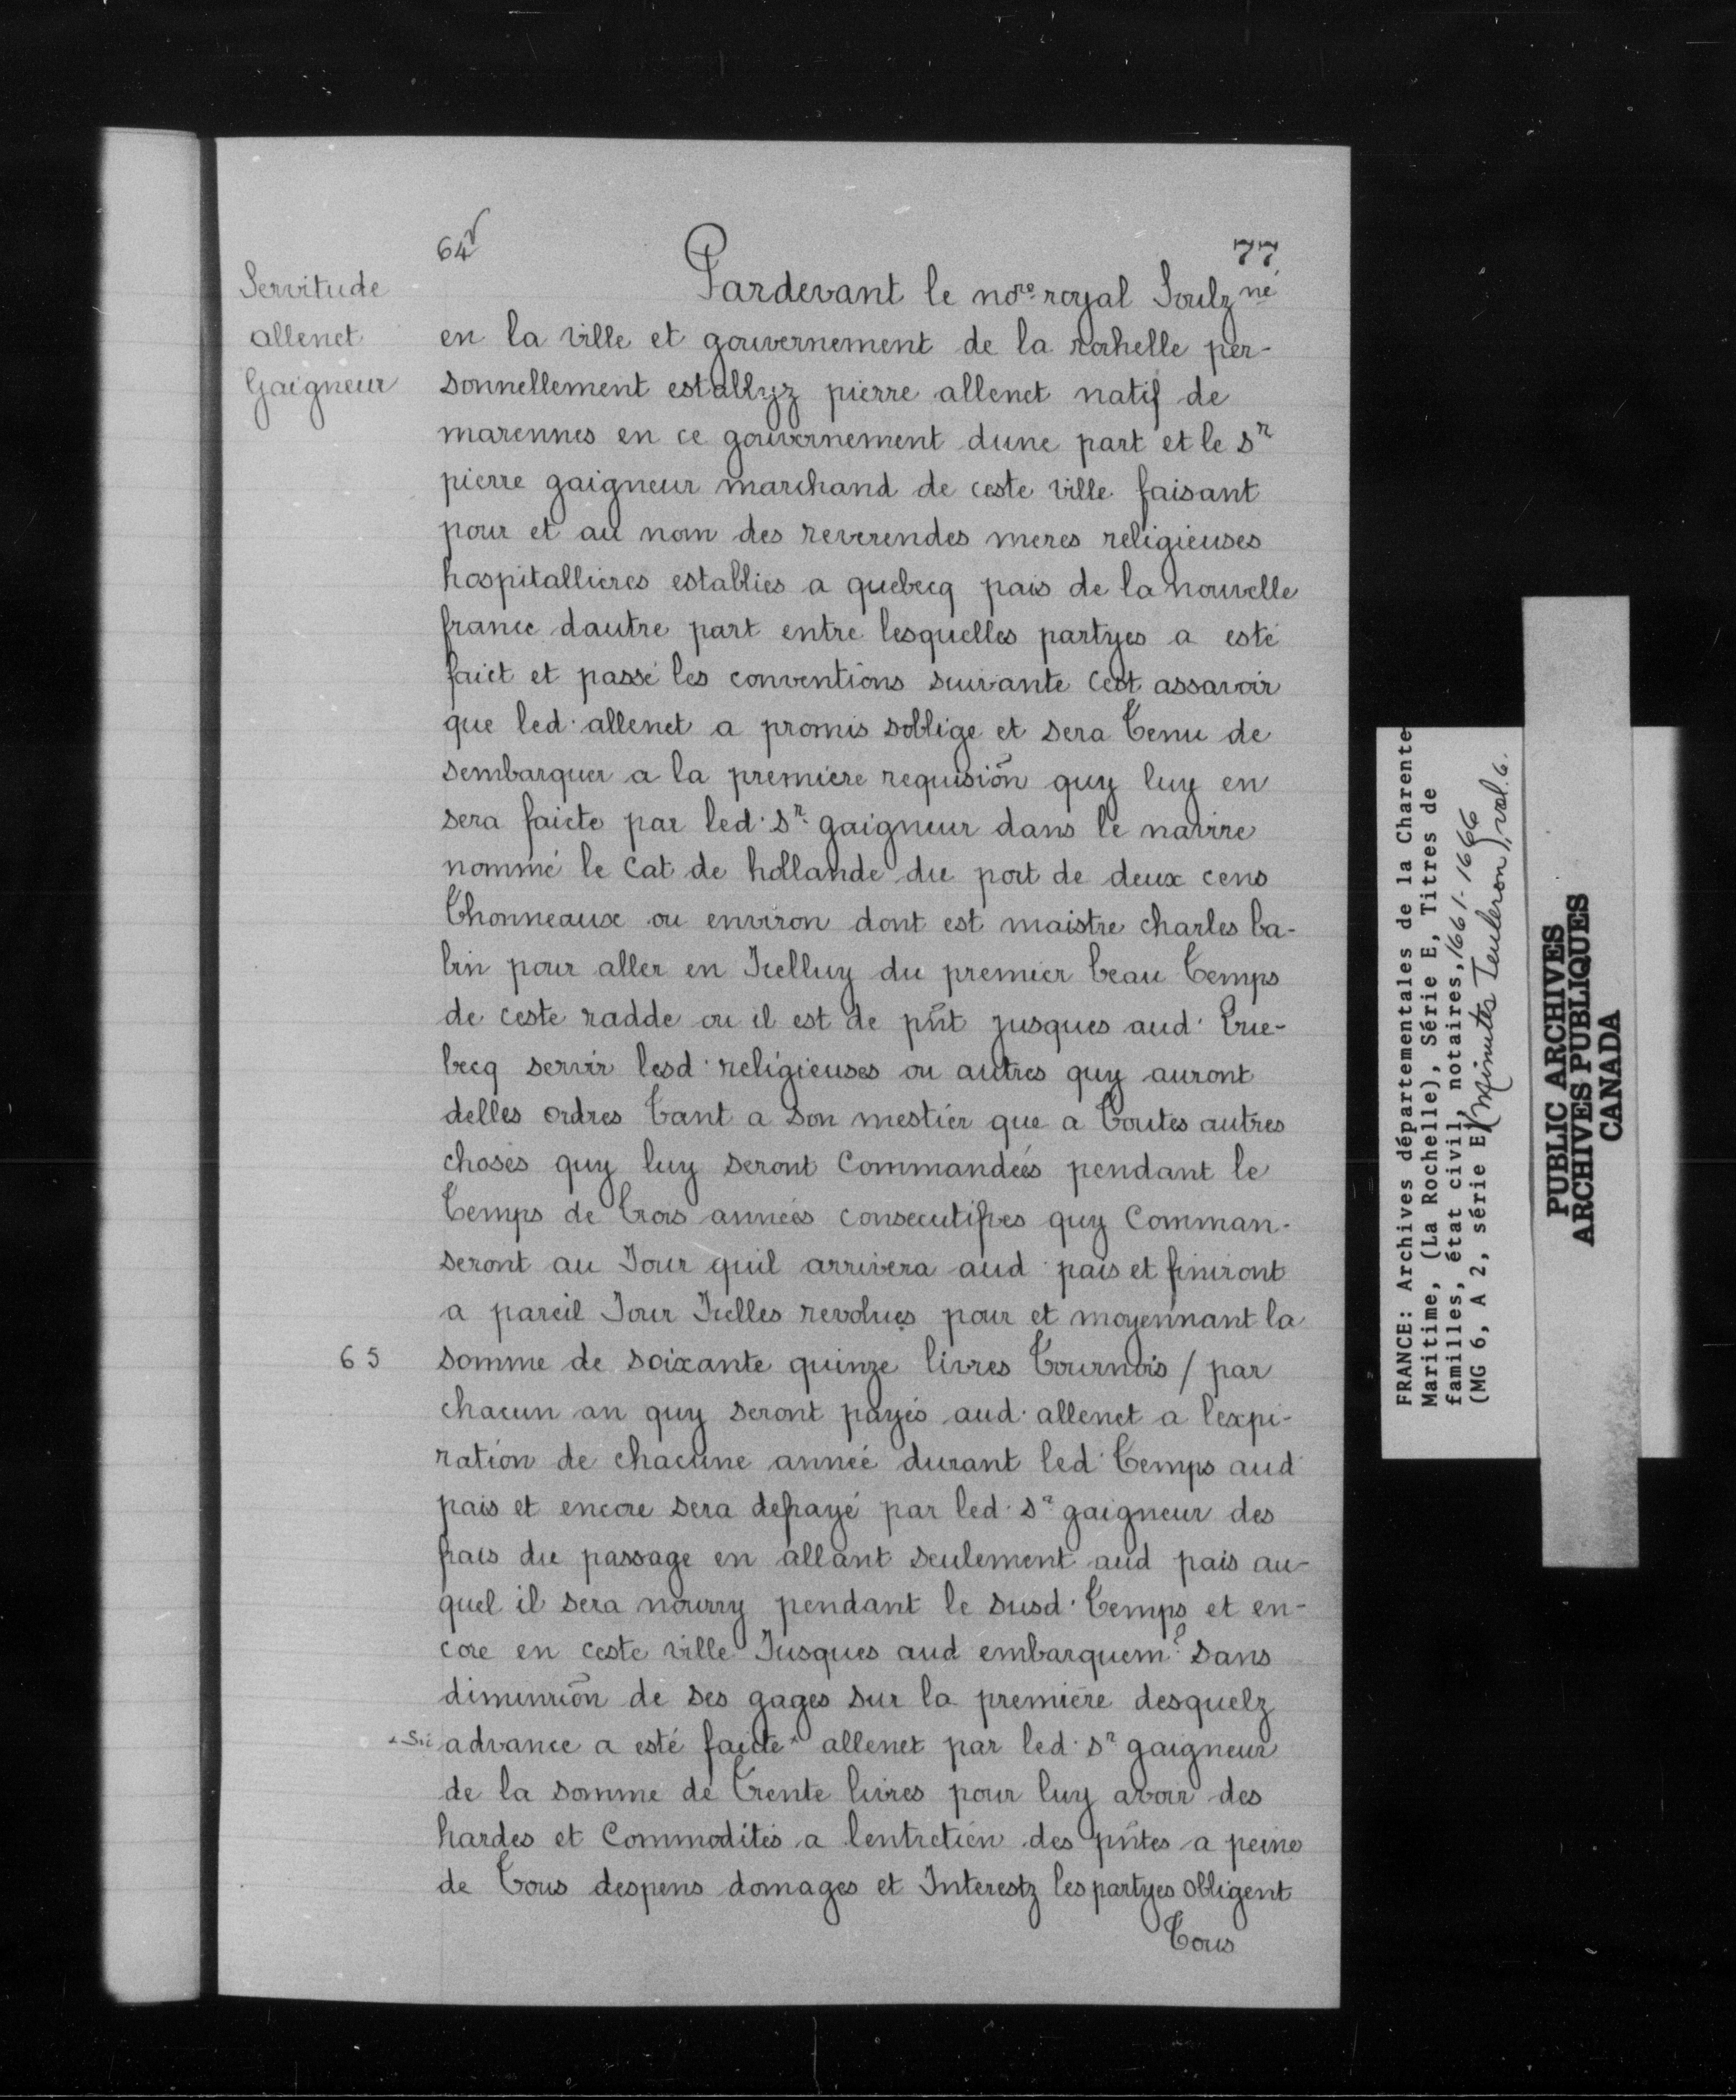 64v
77
Servitude
allenet
Gaigneur
Pardevant le nore royal Soulzné
en la ville et gouvernement de la rochelle per-
sonnellement establyz pierre allenet natif de
marennes en ce gouvernement dune part et le sr
pierre gaigneur marchand de ceste ville faisant
pour et au nom des reverendes meres religieuses
hospitallieres establies a quebecq pais de la nouvelle
france dautre part entre lesquelles partyes a esté
faict et passé les conventions suivante cest assavoir
que led. allenet a promis soblige et sera Tenu de
sembarquer a la premiere requisiõn quy luy en
sera faicte par led. sr gaigneur dans le navire
nommé le Cat de hollande du port de deux cens
Thonneaux ou environ dont est maistre charles ba-
bin pour aller en Icelluy du premier beau Temps
de ceste radde ou il est de pñt jusques aud. Que-
becq servir lesd. religieuses ou autres quy auront
delles ordres Tant a son mestier que a Toutes autres
choses quy luy seront Commandées pendant le
Temps de Trois années consecutifves quy Comman-
seront au Jour quil arrivera aud. pais et finiront
a pareil Jour Icelles revolues pour et moyennant la
65 somme de soixante quinze livres Tournois / par
chacun an quy seront payés aud. allenet a lexpi-
ration de chacune année durant led. Temps aud.
pais et encore sera defrayé par led. sr gaigneur des
frais du passage en allant seulement aud pais au-
quel il sera nourry pendant le susd. Temps et en-
core en ceste ville Jusques aud embarquemt sans
diminuiõn de ses gages sur la premiere desquelz
x Sic advance a esté faicte x allenet par led. sr gaigneur
de la somme de Trente livres pour luy avoir des
hardes et Commodités a lentretien des pñtes a peine
de Tous despens domages et Interestz les partyes obligent
Tous
FRANCE: Archives départementales de la Charente
Maritime, (La Rochelle), Série E, Titres de
familles, état civil, notaires, 1661-1666
(MG 6, A 2, série E) (Minutes Teuleron), vol. 6.
PUBLIC ARCHIVES
ARCHIVES PUBLIQUES
CANADA